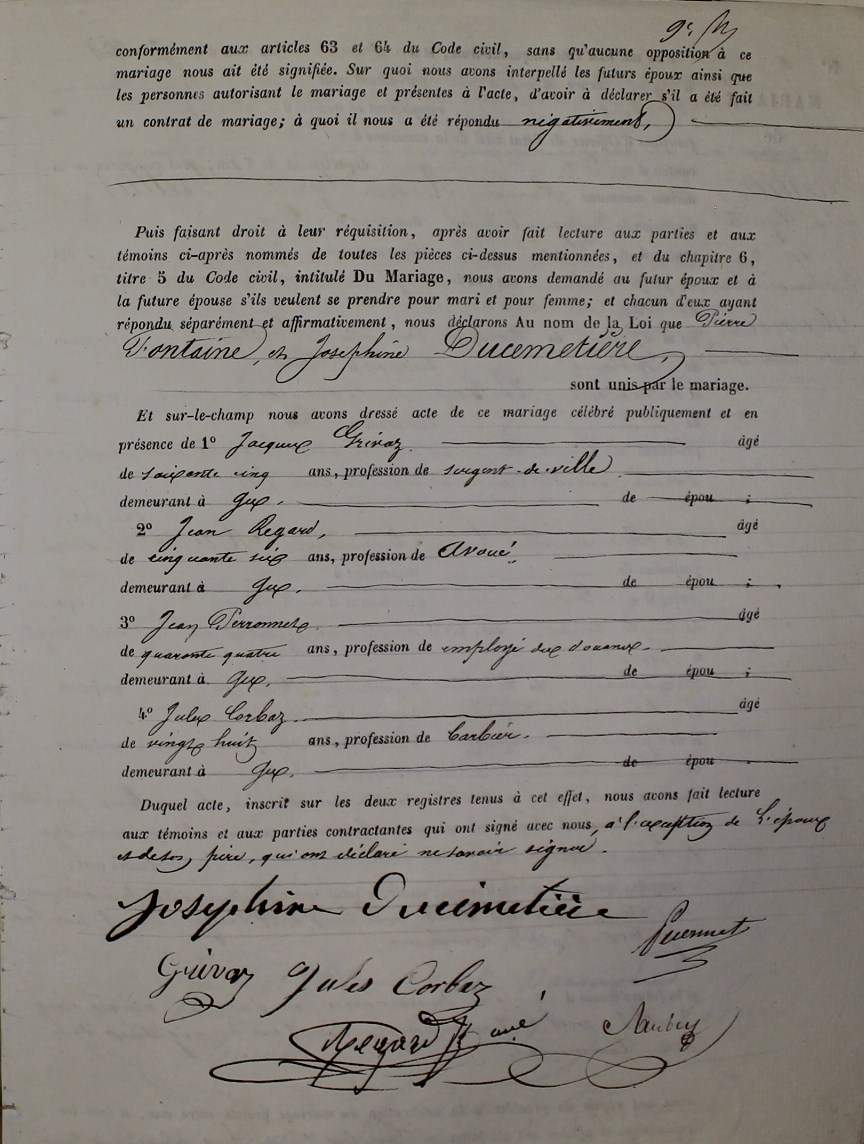 9e M
conformément aux articles 63 et 64 du Code civil, sans qu'aucune opposition à ce
mariage nous ait été signifiée. Sur quoi nous avons interpellé les futurs époux ainsi que
les personnes autorisant le mariage et présentes à l'acte, d'avoir à déclarer s'il a été fait
un contrat de mariage; à quoi il nous a été répondu négativement,
Puis faisant droit à leur réquisition, après avoir fait lecture aux parties et aux
témoins ci-après nommés de toutes les pièces ci-dessus mentionnées, et du chapitre 6,
titre 5 du Code civil, intitulé Du Mariage, nous avons demandé au futur époux et à
la future épouse s'ils veulent se prendre pour mari et pour femme; et chacun d'eux ayant
répondu séparément et affirmativement, nous déclarons Au nom de la Loi que Pierre
Fontaine, et Josephine Ducemetière,
sont unis par le mariage.
Et sur-le-champ nous avons dressé acte de ce mariage célébré publiquement et en
présence de 1º Jacques Grivaz âgé
de soixante cinq ans, profession de sergent-de-ville
demeurant à Gex. de épou ;
2º Jean Regard, âgé
de cinquante six ans, profession de Avoué.
demeurant à Gex. de épou ;
3º Jean Perronnet âgé
de quarante quatre ans, profession de employé des douanes.
demeurant à Gex. de épou ;
4º Jules Corbaz. âgé
de vingt huit ans, profession de barbier.
demeurant à Gex. de épou
Duquel acte, inscrit sur les deux registres tenus à cet effet, nous avons fait lecture
aux témoins et aux parties contractantes qui ont signé avec nous, à l'exception de l'époux
et de son père, qui ont déclaré ne savoir signer.
Josephine Ducimetière
Grivaz Jules Corbaz
Regard avoué